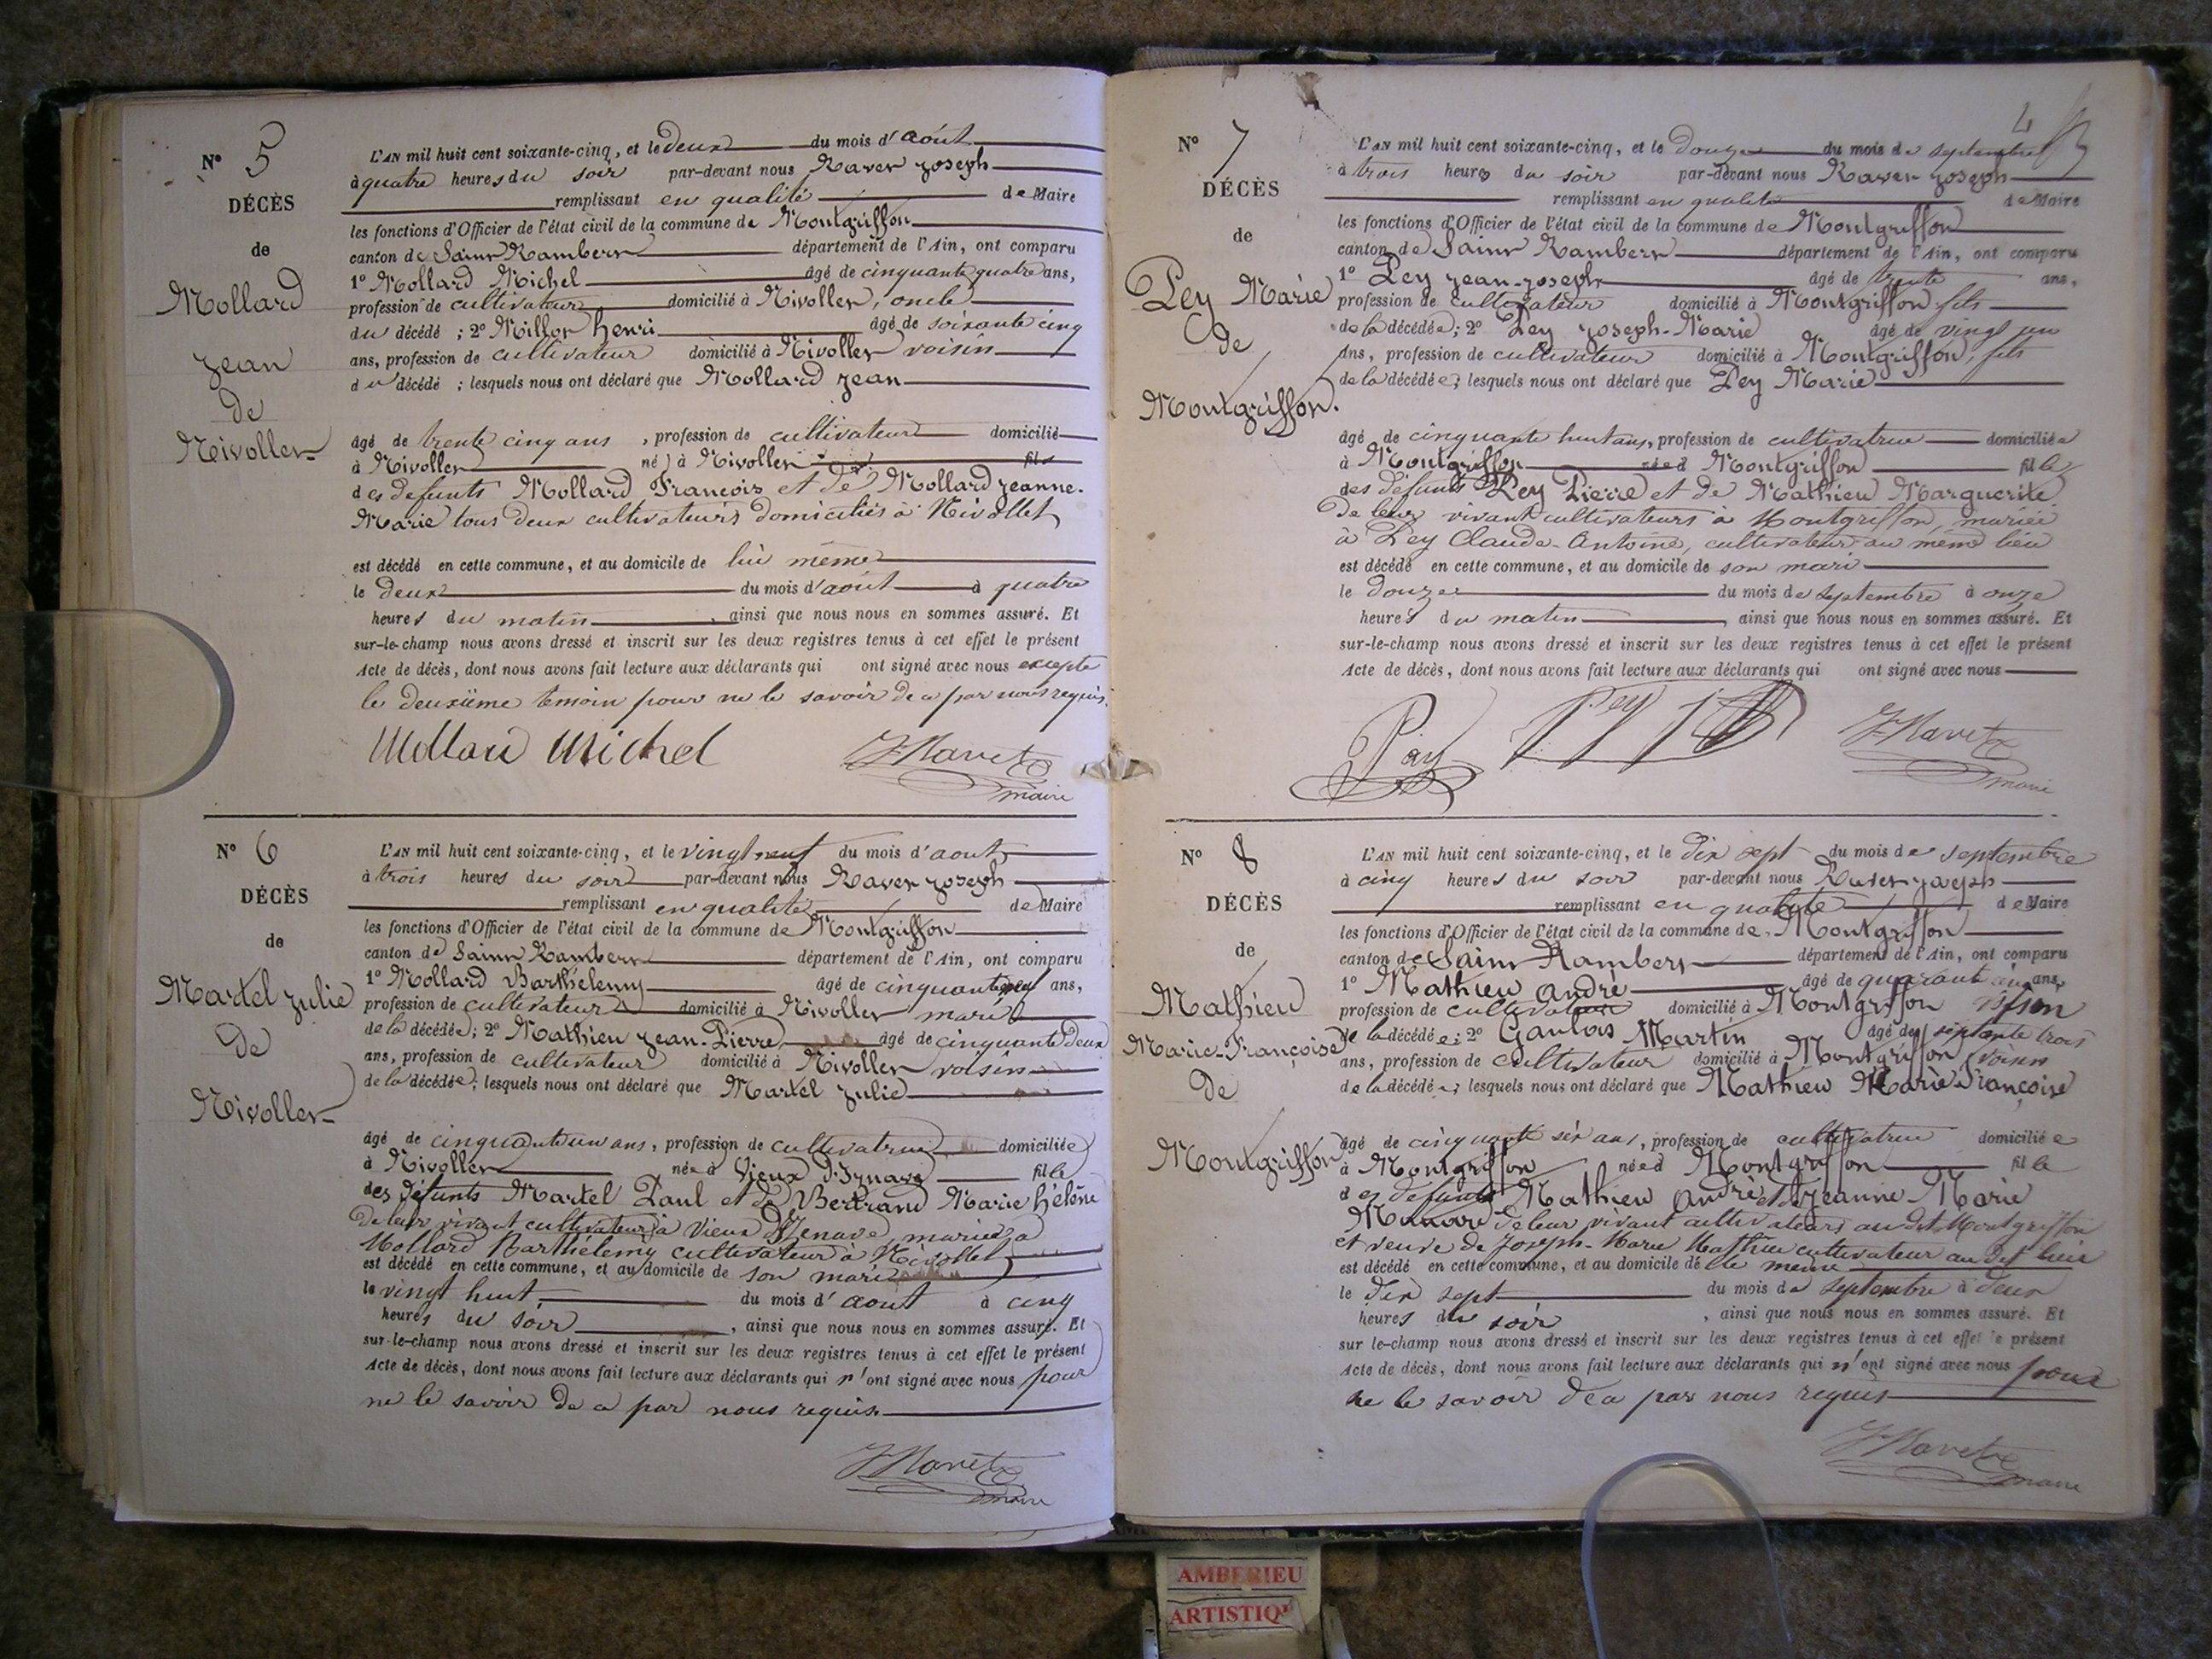 N° 5
DÉCÈS
de
Mollard
Jean
de
Nivollet
L'AN mil huit cent soixante-cinq, et le deux du mois d'août
à quatre heures du soir par-devant nous Ravet Joseph
remplissant en qualité de Maire
les fonctions d'Officier de l'état civil de la commune de Montgriffon
canton de Saint Rambert département de l'Ain, ont comparu
1° Mollard Michel âgé de cinquante quatre ans,
profession de cultivateur domicilié à Nivollet, oncle
du décédé ; 2° Millot henri âgé de soixante cinq
ans, profession de cultivateur domicilié à Nivollet voisin
du décédé ; lesquels nous ont déclaré que Mollard Jean
âgé de trente cinq ans , profession de cultivateur domicilié
à Nivollet né à Nivollet fils
des défunts Mollard François et de Mollard Jeanne-
Marie tous deux cultivateurs domiciliés à Nivollet
est décédé en cette commune, et au domicile de lui même
le deux du mois d'août à quatre
heures du matin , ainsi que nous nous en sommes assuré. Et
sur-le-champ nous avons dressé et inscrit sur les deux registres tenus à cet effet le présent
Acte de décès, dont nous avons fait lecture aux déclarants qui ont signé avec nous excepté
le deuxième témoin pour ne le savoir de ce par nous requis.
Mollard Michel
J Ravet
maire
N° 6
DÉCÈS
de
Martel Julie
de
Nivollet
L'AN mil huit cent soixante-cinq, et le vingt neuf du mois d'aout
à trois heures du soir par-devant nous Ravet Joseph
remplissant en qualité de Maire
les fonctions d'Officier de l'état civil de la commune de Montgriffon
canton de Saint Rambert département de l'Ain, ont comparu
1° Mollard Barthélemy âgé de cinquante neuf ans,
profession de cultivateur domicilié à Nivollet mari
de la décédée ; 2° Mathieu Jean-Pierre âgé de cinquante deux
ans, profession de cultivateur domicilié à Nivollet voisin
de la décédée ; lesquels nous ont déclaré que Martel Julie
âgé de cinquante un ans , profession de cultivatrice domiciliée
à Nivollet née à Vieux d'Izenave fille
des défunts Martel Paul et de Bertrand Marie hélène
de leur vivant cultivateurs à Vieux d'Izenave, mariée à
Mollard Barthélemy cultivateur à Nivollet
est décédé en cette commune, et au domicile de son mari
le vingt huit du mois d'aout à cinq
heures du soir , ainsi que nous nous en sommes assuré. Et
sur-le-champ nous avons dressé et inscrit sur les deux registres tenus à cet effet le présent
Acte de décès, dont nous avons fait lecture aux déclarants qui n'ont signé avec nous pour
ne le savoir de ce par nous requis.
J Ravet
maire
4
N° 7
DÉCÈS
de
Pey Marie
de
Montgriffon.
L'AN mil huit cent soixante-cinq, et le douze du mois de septembre
à trois heures du soir par-devant nous Ravet Joseph
remplissant en qualité de Maire
les fonctions d'Officier de l'état civil de la commune de Montgriffon
canton de Saint Rambert département de l'Ain, ont comparu
1° Pey Jean-Joseph âgé de trente ans,
profession de cultivateur domicilié à Montgriffon fils
de la décédée ; 2° Pey Joseph-Marie âgé de vingt un
ans, profession de cultivateur domicilié à Montgriffon, fils
de la décédée ; lesquels nous ont déclaré que Pey Marie
âgé de cinquante huit ans, profession de cultivatrice domiciliée
à Montgriffon née à Montgriffon fille
des défunts Pey Pierre et de Mathieu Marguerite
de leur vivant cultivateurs à Montgriffon, mariée
à Pey Claude-Antoine, cultivateur au même lieu
est décédé en cette commune, et au domicile de son mari
le douze du mois de septembre à onze
heures du matin , ainsi que nous nous en sommes assuré. Et
sur-le-champ nous avons dressé et inscrit sur les deux registres tenus à cet effet le présent
Acte de décès, dont nous avons fait lecture aux déclarants qui ont signé avec nous
Pay Pey J Ravet
maire
N° 8
DÉCÈS
de
Mathieu
Marie-Françoise
de
Montgriffon
L'AN mil huit cent soixante-cinq, et le dix sept du mois de septembre
à cinq heures du soir par-devant nous Ravet Joseph
remplissant en qualité de Maire
les fonctions d'Officier de l'état civil de la commune de Montgriffon
canton de Saint Rambert département de l'Ain, ont comparu
1° Mathieu André âgé de quarante ans,
profession de cultivateur domicilié à Montgriffon voisin
de la décédée ; 2° Gantois Martin âgé de septante trois
ans, profession de cultivateur domicilié à Montgriffon voisin
de la décédée ; lesquels nous ont déclaré que Mathieu Marie Françoise
âgé de cinquante six ans, profession de cultivatrice domiciliée
à Montgriffon née à Montgriffon fille
des défunts Mathieu André et de Jeanne-Marie
de leur vivant cultivateurs au dit Montgriffon
et veuve de Joseph-Marie Mathieu cultivateur au dit lieu
est décédé en cette commune, et au domicile d'elle même
le dix sept du mois de septembre à deux
heures du soir , ainsi que nous nous en sommes assuré. Et
sur le-champ nous avons dressé et inscrit sur les deux registres tenus à cet effet le présent
Acte de décès, dont nous avons fait lecture aux déclarants qui n'ont signé avec nous pour
ne le savoir de ce par nous requis
J Ravet
maire
AMBERIEU
ARTISTIQU